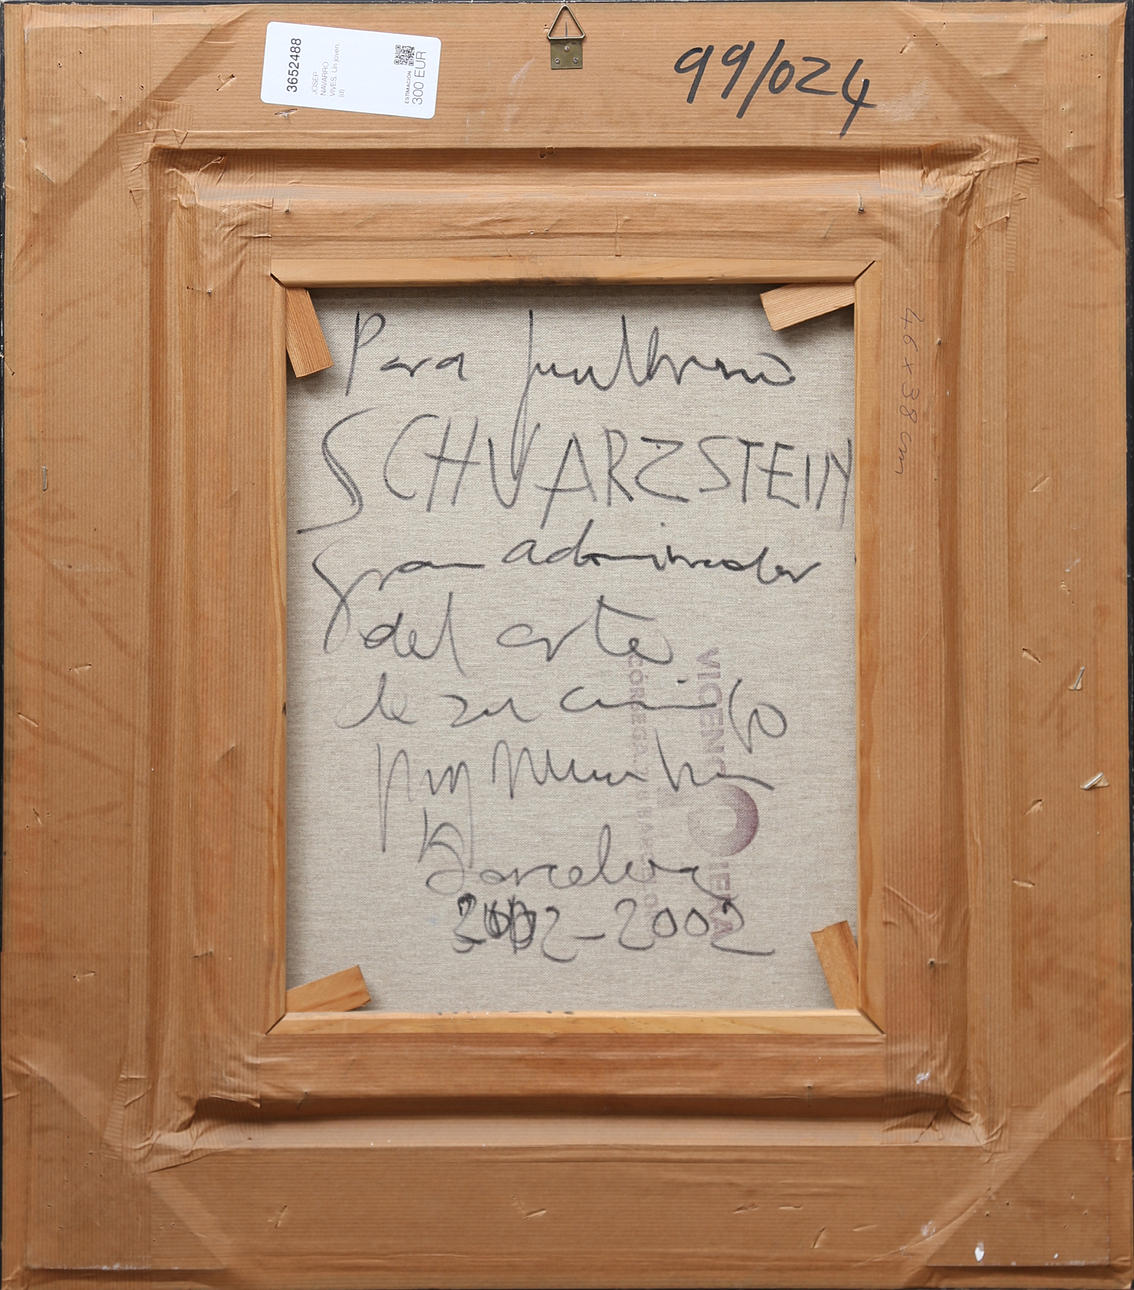 3652488
JOSEP
NAVARRO
VIVES. Un joven.
(d)
ESTIMACIÓN
300 EUR
99/024
46 x 38 cm
Para
SCHVARZSTEIN
gran admirador
del arte
de su amigo
Barcelona
2002-2002
VICENÇ
CÓRCEGA